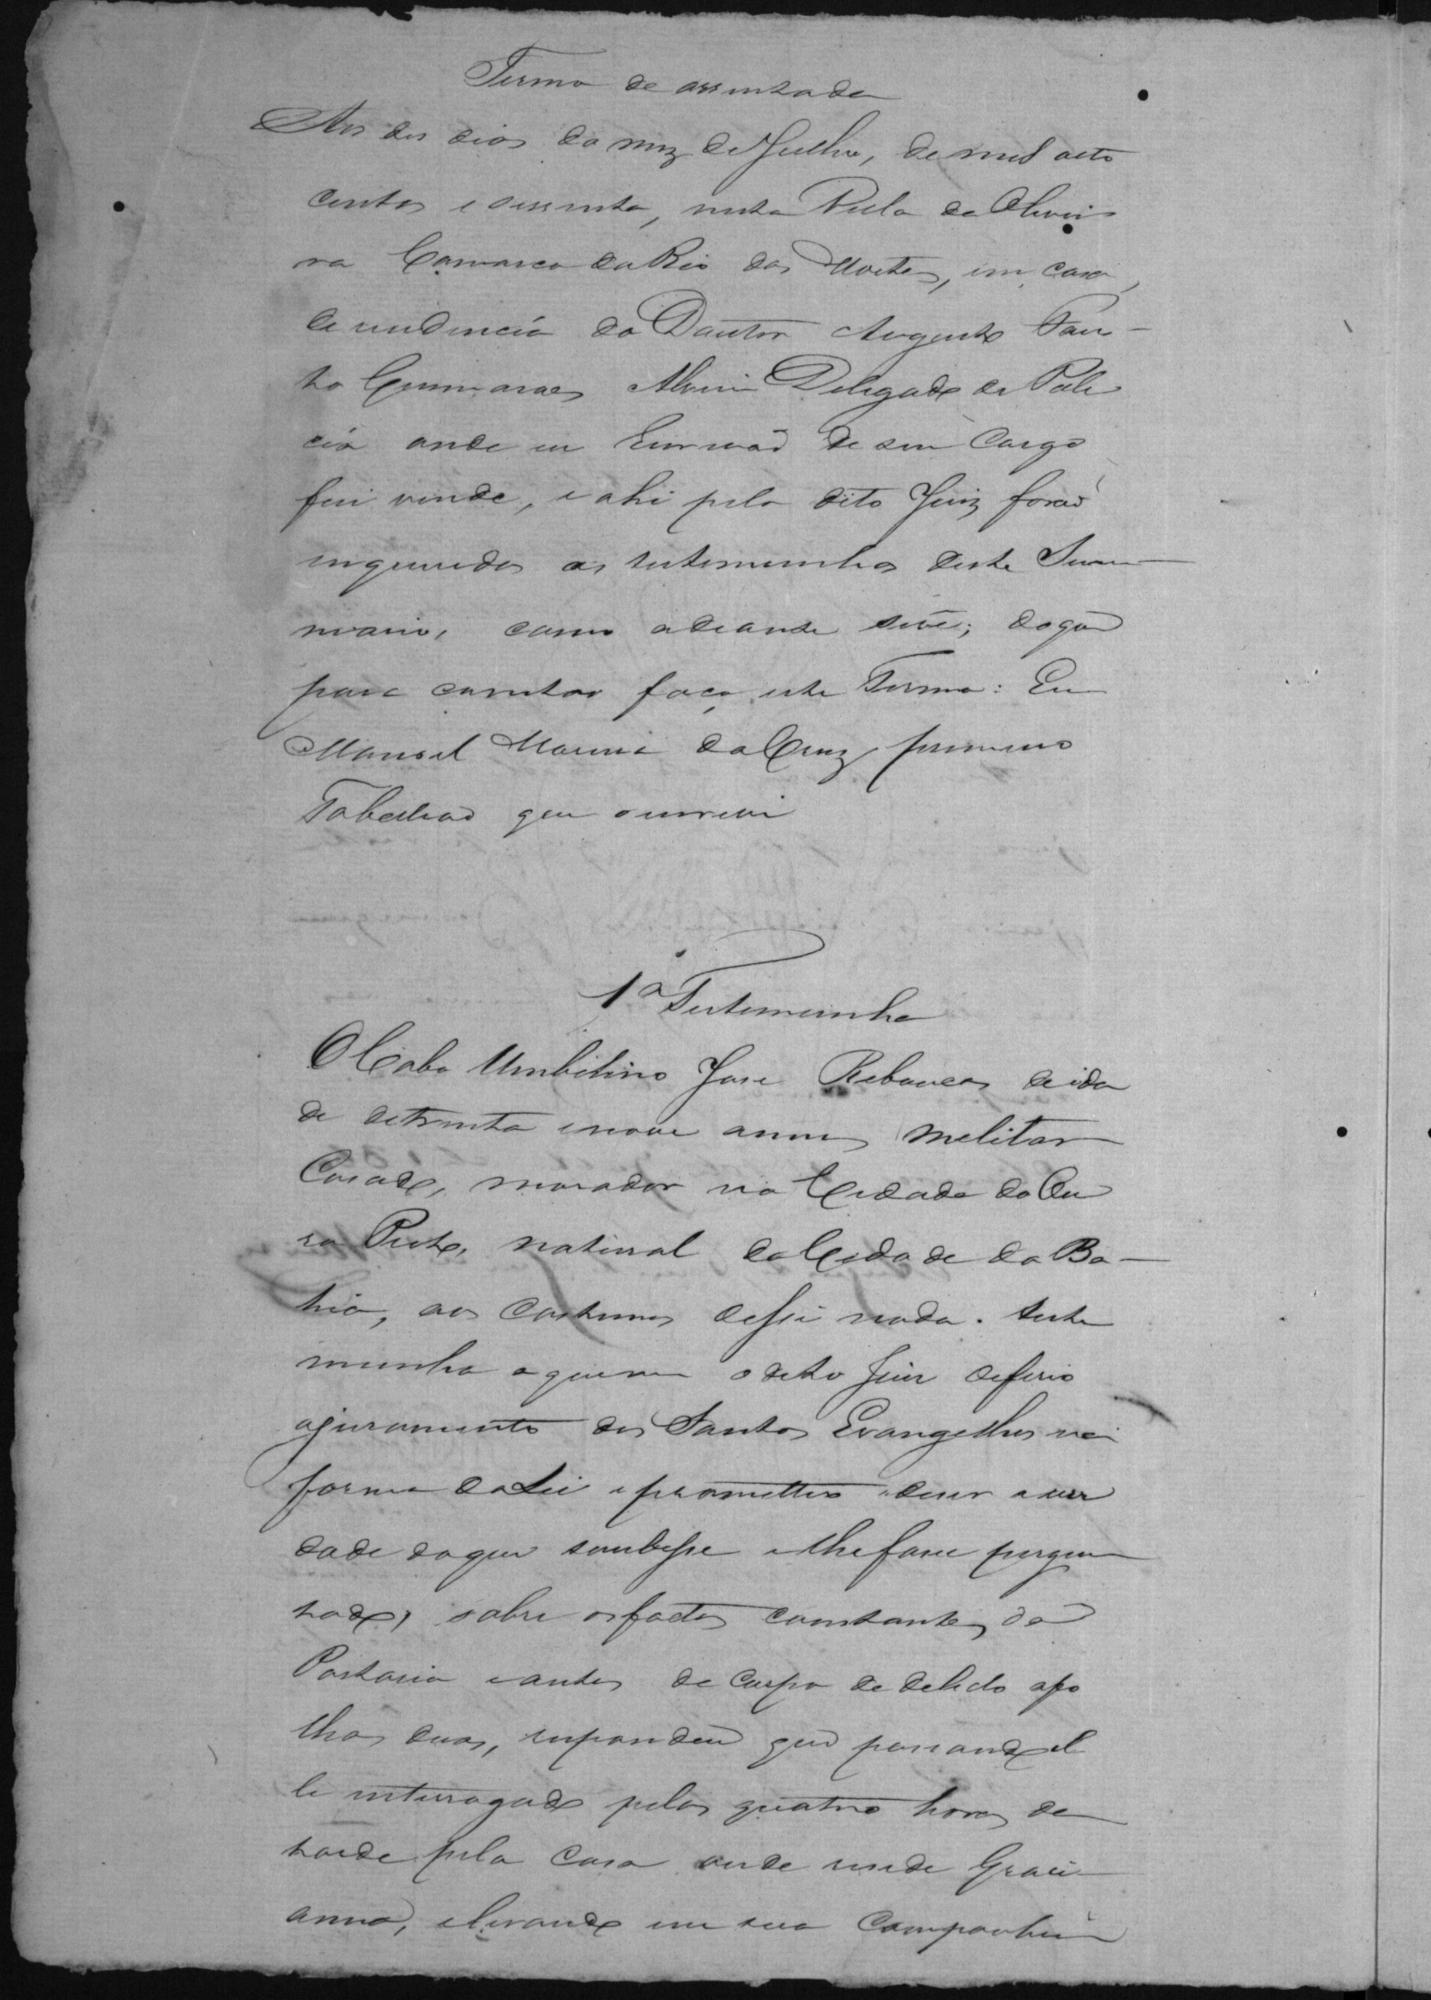 Termo de assentada
Aos des dias do mez de Julho, de mil oito
centos e sessenta, nesta Villa da Olivei
ra Comarca do Rio das Mortes, em casa,
de residencia do Doutor Augusto Faus-
to Guimaraes Alvim Delegado de Poli
cia onde eu Escrivaõ de seu Cargo
fui vindo, e ahi pelo dito Juiz foraõ
inqueridas as testemunhas deste Sum-
mario, como adeante se vê; do que
para constar faço este Termo: Eu
Manoel Marini da Cruz primeiro
Tabelliaõ que o escrevi
1ª Testemunha
O Cabo Umbilino Jose Rebouças de ida
de de trinta e nove annos militar
Casado, morador na Cidade do Ou
ro Preto, natural da Cidade da Ba-
hia, aos costumes disse nada. teste
munha a quem o dito Juiz deferio
o juramento dos Santos Evangelhos na
forma da Lei e prometteo dizer a ver
dade do que soubesse e lhe fosse pergun
tado, sobre os factos constantes da
Portaria e autos de Corpo de delicto a fo
lhas duas, respondeu que passando el
le interrogado pelas quatro horas da
tarde pela casa onde reside Graci
anna, e levando em sua Companhia